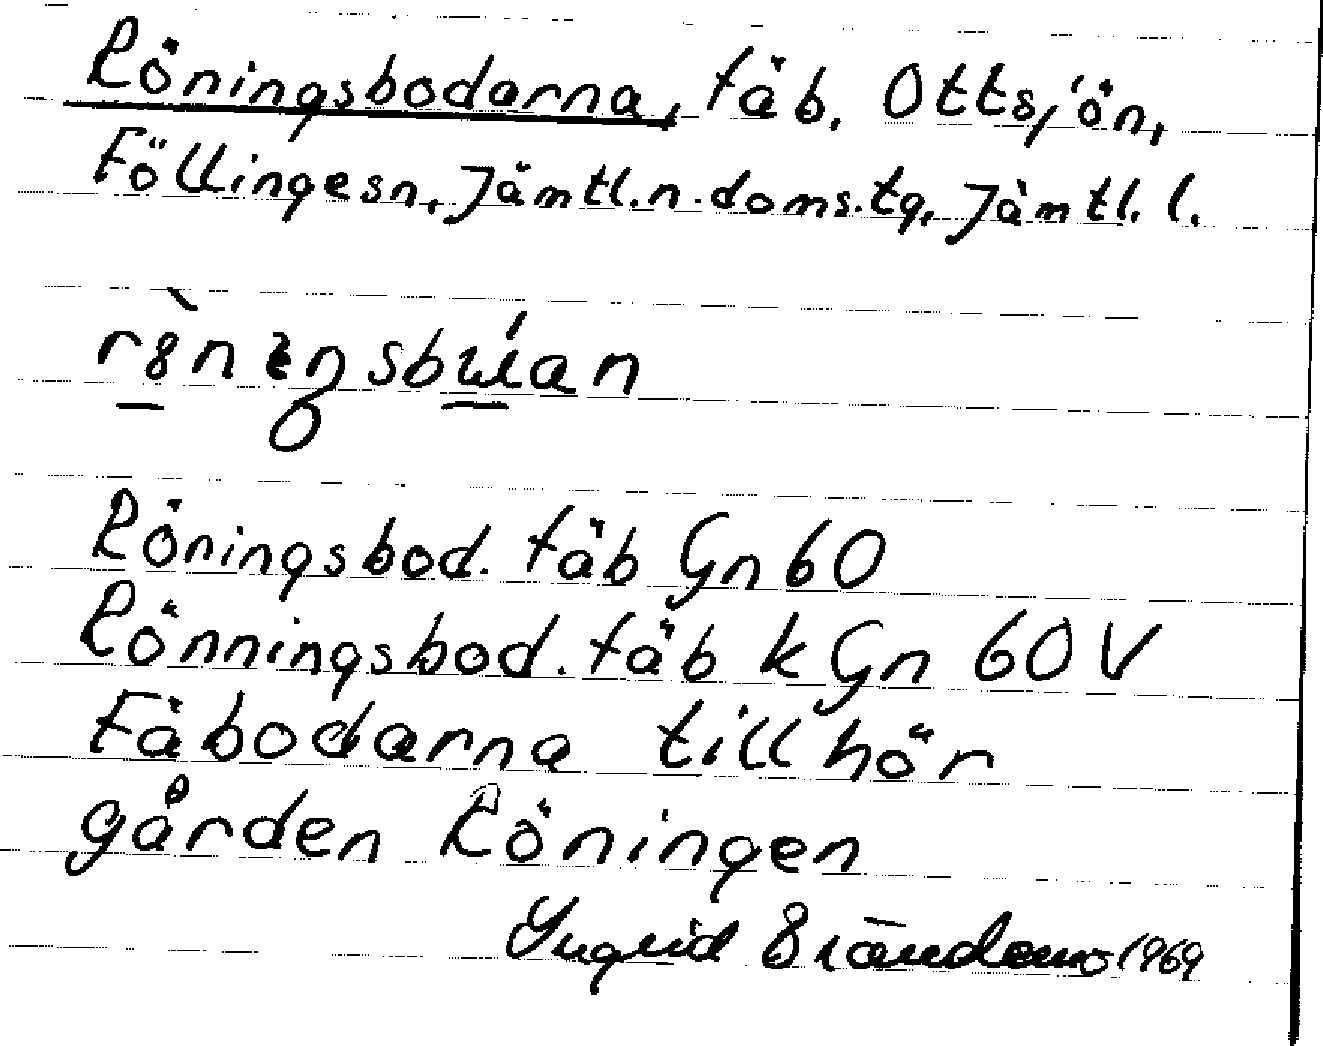 Röningsbodarna, fäb. Ottsjön,
Föllingesn, Jämtl.n.doms.tg, Jämtl. l.
Röningsbod. fäb Gn 60
Rönningsbod. fäb k Gn 60 V
Fäbodarna tillhör
gården Röningen
Ingrid Brändemo 1969